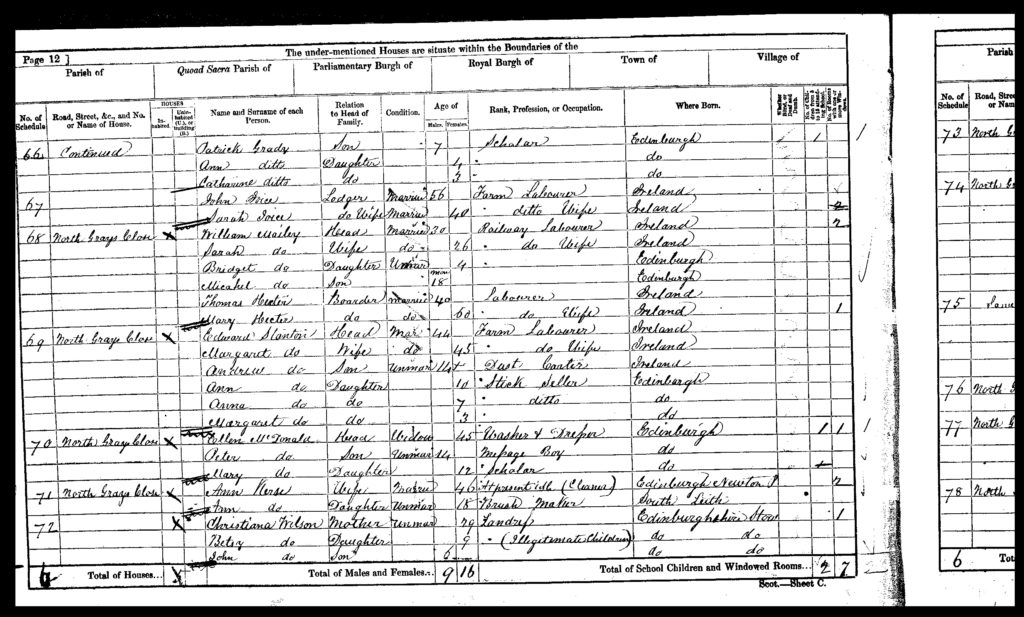 Page 12 ]
The under-mentioned Houses are situate within the Boundaries of the
Parish of Quoad Sacra Parish of Parliamentary Burgh of Royal Burgh of Town of Village of
No. of Schedule Road, Street, &c., and No. or Name of House. HOUSES Inhabited Uninhabited (U.), or building (B.) Name and Surname of each Person. Relation to Head of Family. Condition. Age of Males. Females. Rank, Profession, or Occupation. Where Born.
66 Continued Patrick Grady Son 7 Scholar Edinburgh 1
Ann ditto Daughter 4 " do
Catharine ditto do 3 " do
67 John Joice Lodger Married 56 Farm Labourer Ireland
Sarah Joice do Wife Married 40 " ditto Wife Ireland 2
68 North Grays Close X William Mailey Head Married 30 Railway Labourer Ireland 2
Sarah do Wife do 26 " do Wife Ireland
Bridget do Daughter Unmar 4 Edinburgh
Micahel do Son 18 Edinburgh
Thomas Hecter Boarder Married 40 Labourer Ireland
Mary Hecter do do 60 " do Wife Ireland 1
69 North Grays Close X Edward Stanton Head Mar 44 Farm Labourer Ireland
Margaret do Wife do 45 " do Wife Ireland
Andrew do Son Unmar 14 Dust Carter Ireland
Ann do Daughter 10 " Stick Seller Edinburgh
Anna do do 7 " ditto do
Margaret do do 3 " do
70 North Grays Close X Ellen McDonald Head Widow 45 Washer & Dresser Edinburgh 1 1
Peter do Son Unmar 14 Message Boy do
Mary do Daughter 12 " Scholar do
71 North Grays Close X Ann Wife Married 46 (Cleaner) Edinburgh Newton 2
Ann do Daughter Unmar 18 Brush Maker South Leith
72 X Christiana Wilson Mother Unmar 29 Edinburghshire Stow 1
Betsy do Daughter 9 " (Illegitimate Children) do do
John do Son 6 do do
6 Total of Houses... Total of Males and Females.. 9 16 Total of School Children and Windowed Rooms... 2 7
Scot.—Sheet C.
Parish
No. of Schedule Road, Street or Name
73 North G
74 North G
75
76 North G
77 North G
78 North
6 Total